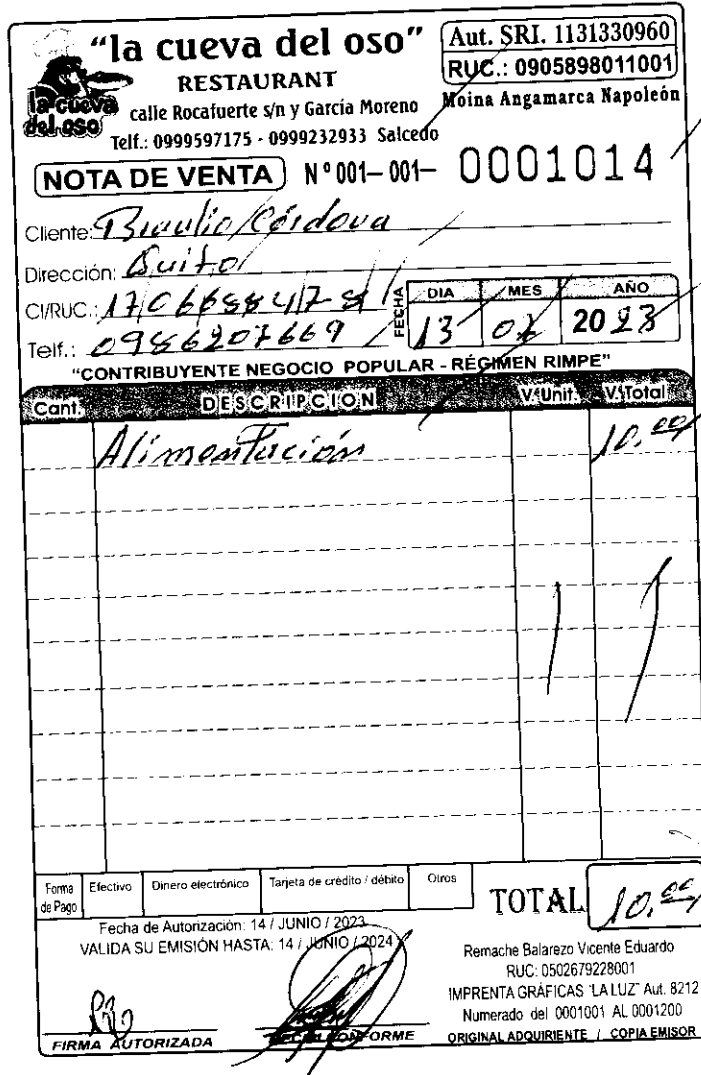 "la cueva del oso"
RESTAURANT
la cueva
del oso
calle Rocafuerte s/n y García Moreno
Telf.: 0999597175 - 0999232933 Salcedo
Aut. SRI. 1131330960
RUC.: 0905898011001
Moina Angamarca Napoleón
NOTA DE VENTA N° 001-001- 0001014
Cliente: Braulio Córdova
Dirección: Quito
CI/RUC.:
Telf.: 0986207669
FECHA
DIA MES AÑO
13 07 2023
"CONTRIBUYENTE NEGOCIO POPULAR - RÉGIMEN RIMPE"
Cant. DESCRIPCION V.Unit. V.Total
Alimentación 10.00
Forma de Pago Efectivo Dinero electrónico Tarjeta de crédito / débito Otros
TOTAL 10.00
Fecha de Autorización: 14 / JUNIO / 2023
VALIDA SU EMISIÓN HASTA: 14 / JUNIO / 2024
Remache Balarezo Vicente Eduardo
RUC: 0502679228001
IMPRENTA GRÁFICAS "LA LUZ" Aut. 8212
Numerado del 0001001 AL 0001200
ORIGINAL ADQUIRIENTE / COPIA EMISOR
FIRMA AUTORIZADA
CONFORME